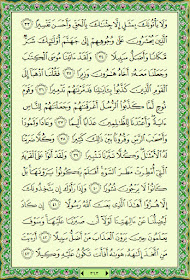 وَلَا يَأْتُونَكَ بِمَثَلٍ إِلَّا جِئْنَاكَ بِالْحَقِّ وَأَحْسَنَ تَفْسِيرًا ٣٣
الَّذِينَ يُحْشَرُونَ عَلَىٰ وُجُوهِهِمْ إِلَىٰ جَهَنَّمَ أُولَٰئِكَ شَرٌّ
مَّكَانًا وَأَضَلُّ سَبِيلًا ٣٤ وَلَقَدْ آتَيْنَا مُوسَى الْكِتَابَ
وَجَعَلْنَا مَعَهُ أَخَاهُ هَارُونَ وَزِيرًا ٣٥ فَقُلْنَا اذْهَبَا إِلَى
الْقَوْمِ الَّذِينَ كَذَّبُوا بِآيَاتِنَا فَدَمَّرْنَاهُمْ تَدْمِيرًا ٣٦ وَقَوْمَ
نُوحٍ لَّمَّا كَذَّبُوا الرُّسُلَ أَغْرَقْنَاهُمْ وَجَعَلْنَاهُمْ لِلنَّاسِ
آيَةً وَأَعْتَدْنَا لِلظَّالِمِينَ عَذَابًا أَلِيمًا ٣٧ وَعَادًا وَثَمُودَ
وَأَصْحَابَ الرَّسِّ وَقُرُونًا بَيْنَ ذَٰلِكَ كَثِيرًا ٣٨ وَكُلًّا ضَرَبْنَا
لَهُ الْأَمْثَالَ وَكُلًّا تَبَّرْنَا تَتْبِيرًا ٣٩ وَلَقَدْ أَتَوْا عَلَى الْقَرْيَةِ
الَّتِي أُمْطِرَتْ مَطَرَ السَّوْءِ أَفَلَمْ يَكُونُوا يَرَوْنَهَا بَلْ
كَانُوا لَا يَرْجُونَ نُشُورًا ٤٠ وَإِذَا رَأَوْكَ إِن يَتَّخِذُونَكَ
إِلَّا هُزُوًا أَهَٰذَا الَّذِي بَعَثَ اللَّهُ رَسُولًا ٤١ إِن كَادَ
لَيُضِلُّنَا عَنْ آلِهَتِنَا لَوْلَا أَن صَبَرْنَا عَلَيْهَا وَسَوْفَ
يَعْلَمُونَ حِينَ يَرَوْنَ الْعَذَابَ مَنْ أَضَلُّ سَبِيلًا ٤٢ أَرَأَيْتَ
مَنِ اتَّخَذَ إِلَٰهَهُ هَوَاهُ أَفَأَنتَ تَكُونُ عَلَيْهِ وَكِيلًا ٤٣
٣٦٣